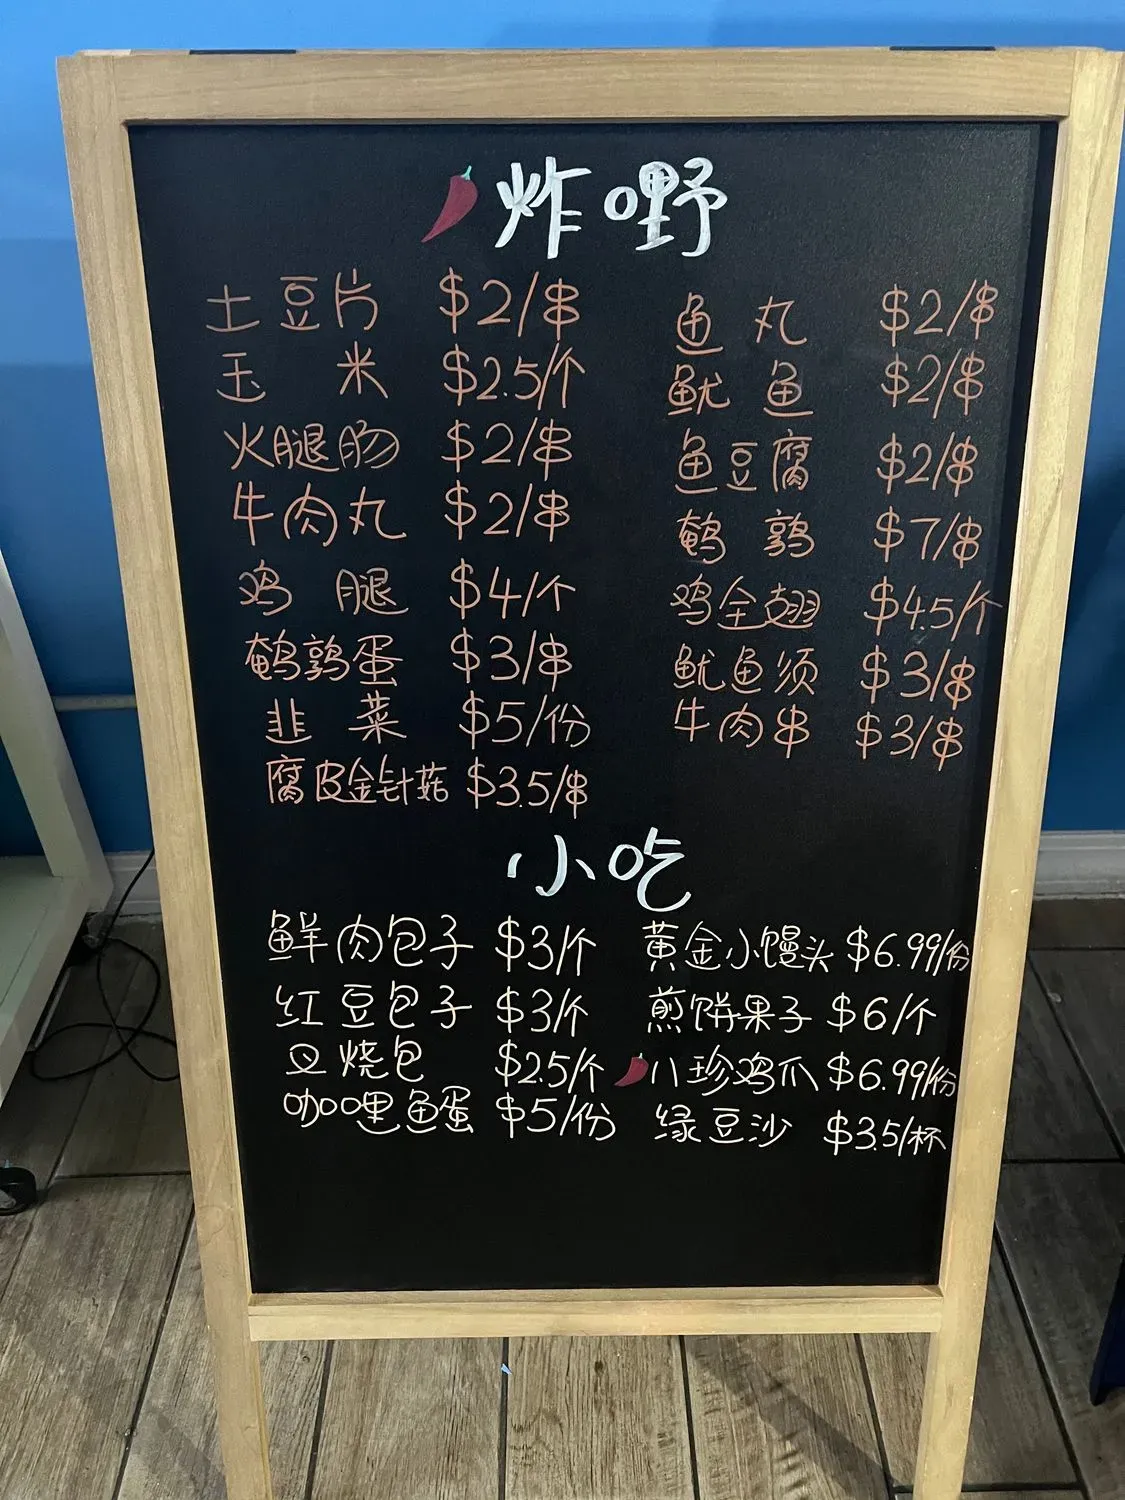 炸嘢
土豆片 $2/串
玉米 $2.5/个
火腿肠 $2/串
牛肉丸 $2/串
鸡腿 $4/个
鹌鹑蛋 $3/串
韭菜 $5/份
腐皮金针菇 $3.5/串
鱼丸 $2/串
鱿鱼 $2/串
鱼豆腐 $2/串
鹌鹑 $7/串
鸡全翅 $4.5/个
鱿鱼须 $3/串
牛肉串 $3/串
小吃
鲜肉包子 $3/个
红豆包子 $3/个
叉烧包 $2.5/个
咖哩鱼蛋 $5/份
黄金小馒头 $6.99/份
煎饼果子 $6/个
八珍鸡爪 $6.99/份
绿豆沙 $3.5/杯